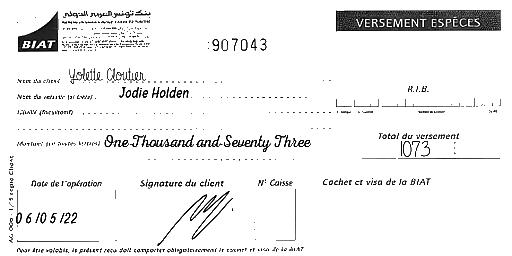 بنك تونس العربي الدولي
BIAT
VERSEMENT ESPÈCES
907043
Nom du client Yolette Cloutier
Nom du verseur (si tiers) . Jodie Holden
R.I.B.
Libellé (facultatif)
Montant (en toutes lettres) One Thousand and Seventy Three
Total du versement
1073
Date de l'opération
Signature du client
N° Caisse
Cachet et visa de la BIAT
06/05/22
Pour être valable, le présent reçu doit comporter obligatoirement le cachet et visa de la BIAT